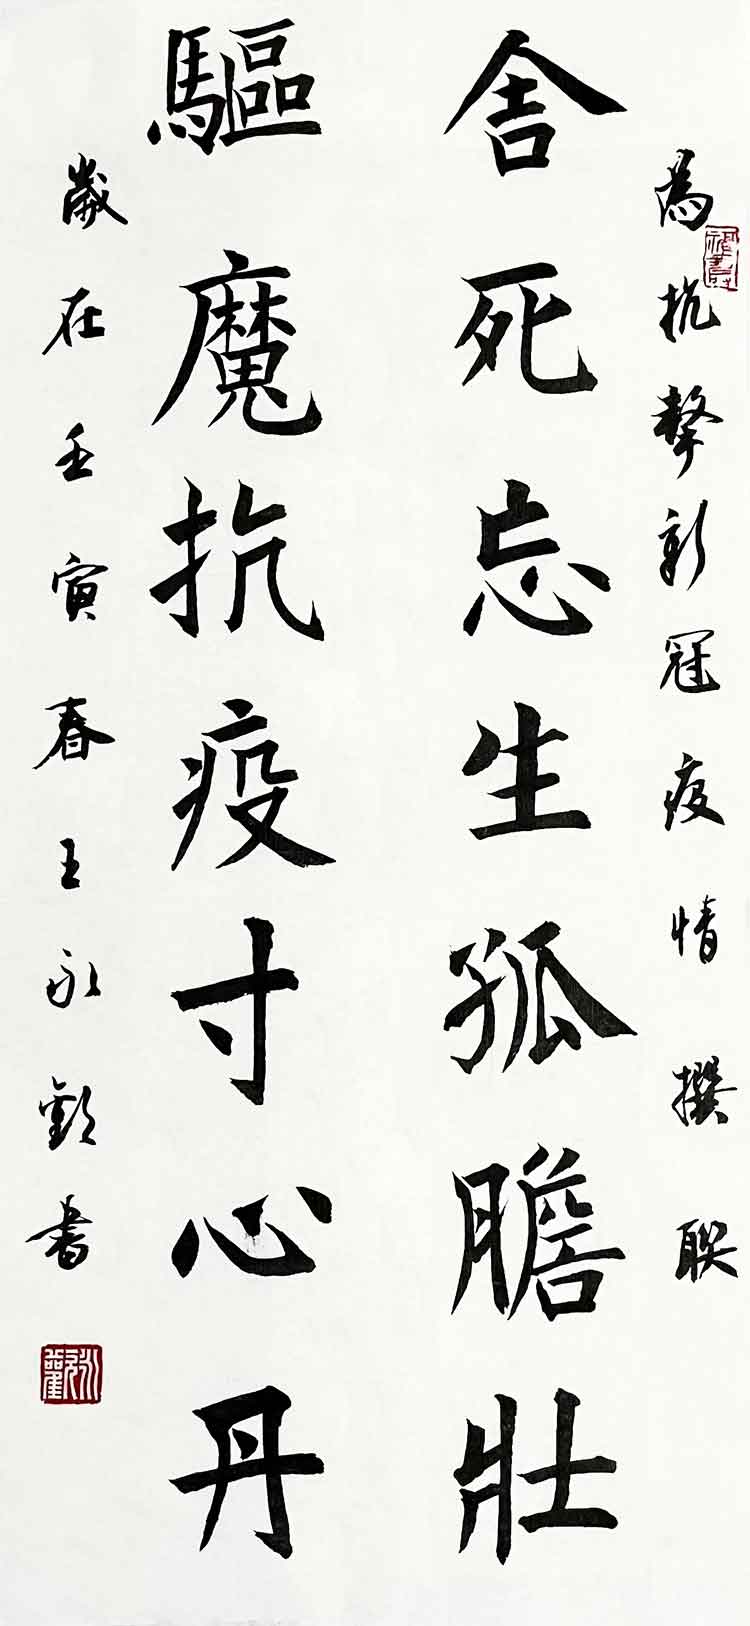 為抗擊新冠疫情撰聯
舍死忘生孤膽壯
驅魔抗疫寸心丹
歲在壬寅春王永歡書